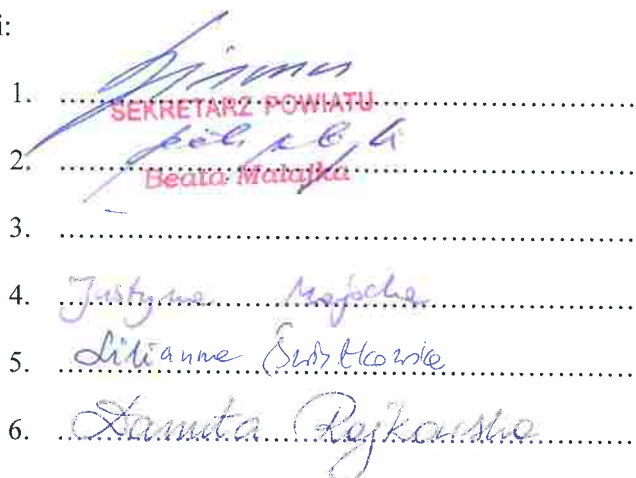 i:
1. ........................................
SEKRETARZ POWIATU
2. ........................................
Beata Malajka
3. ........................................
4. Justyna Majocha
5. Lilianna Świątkowska
6. Danuta Rajkowska